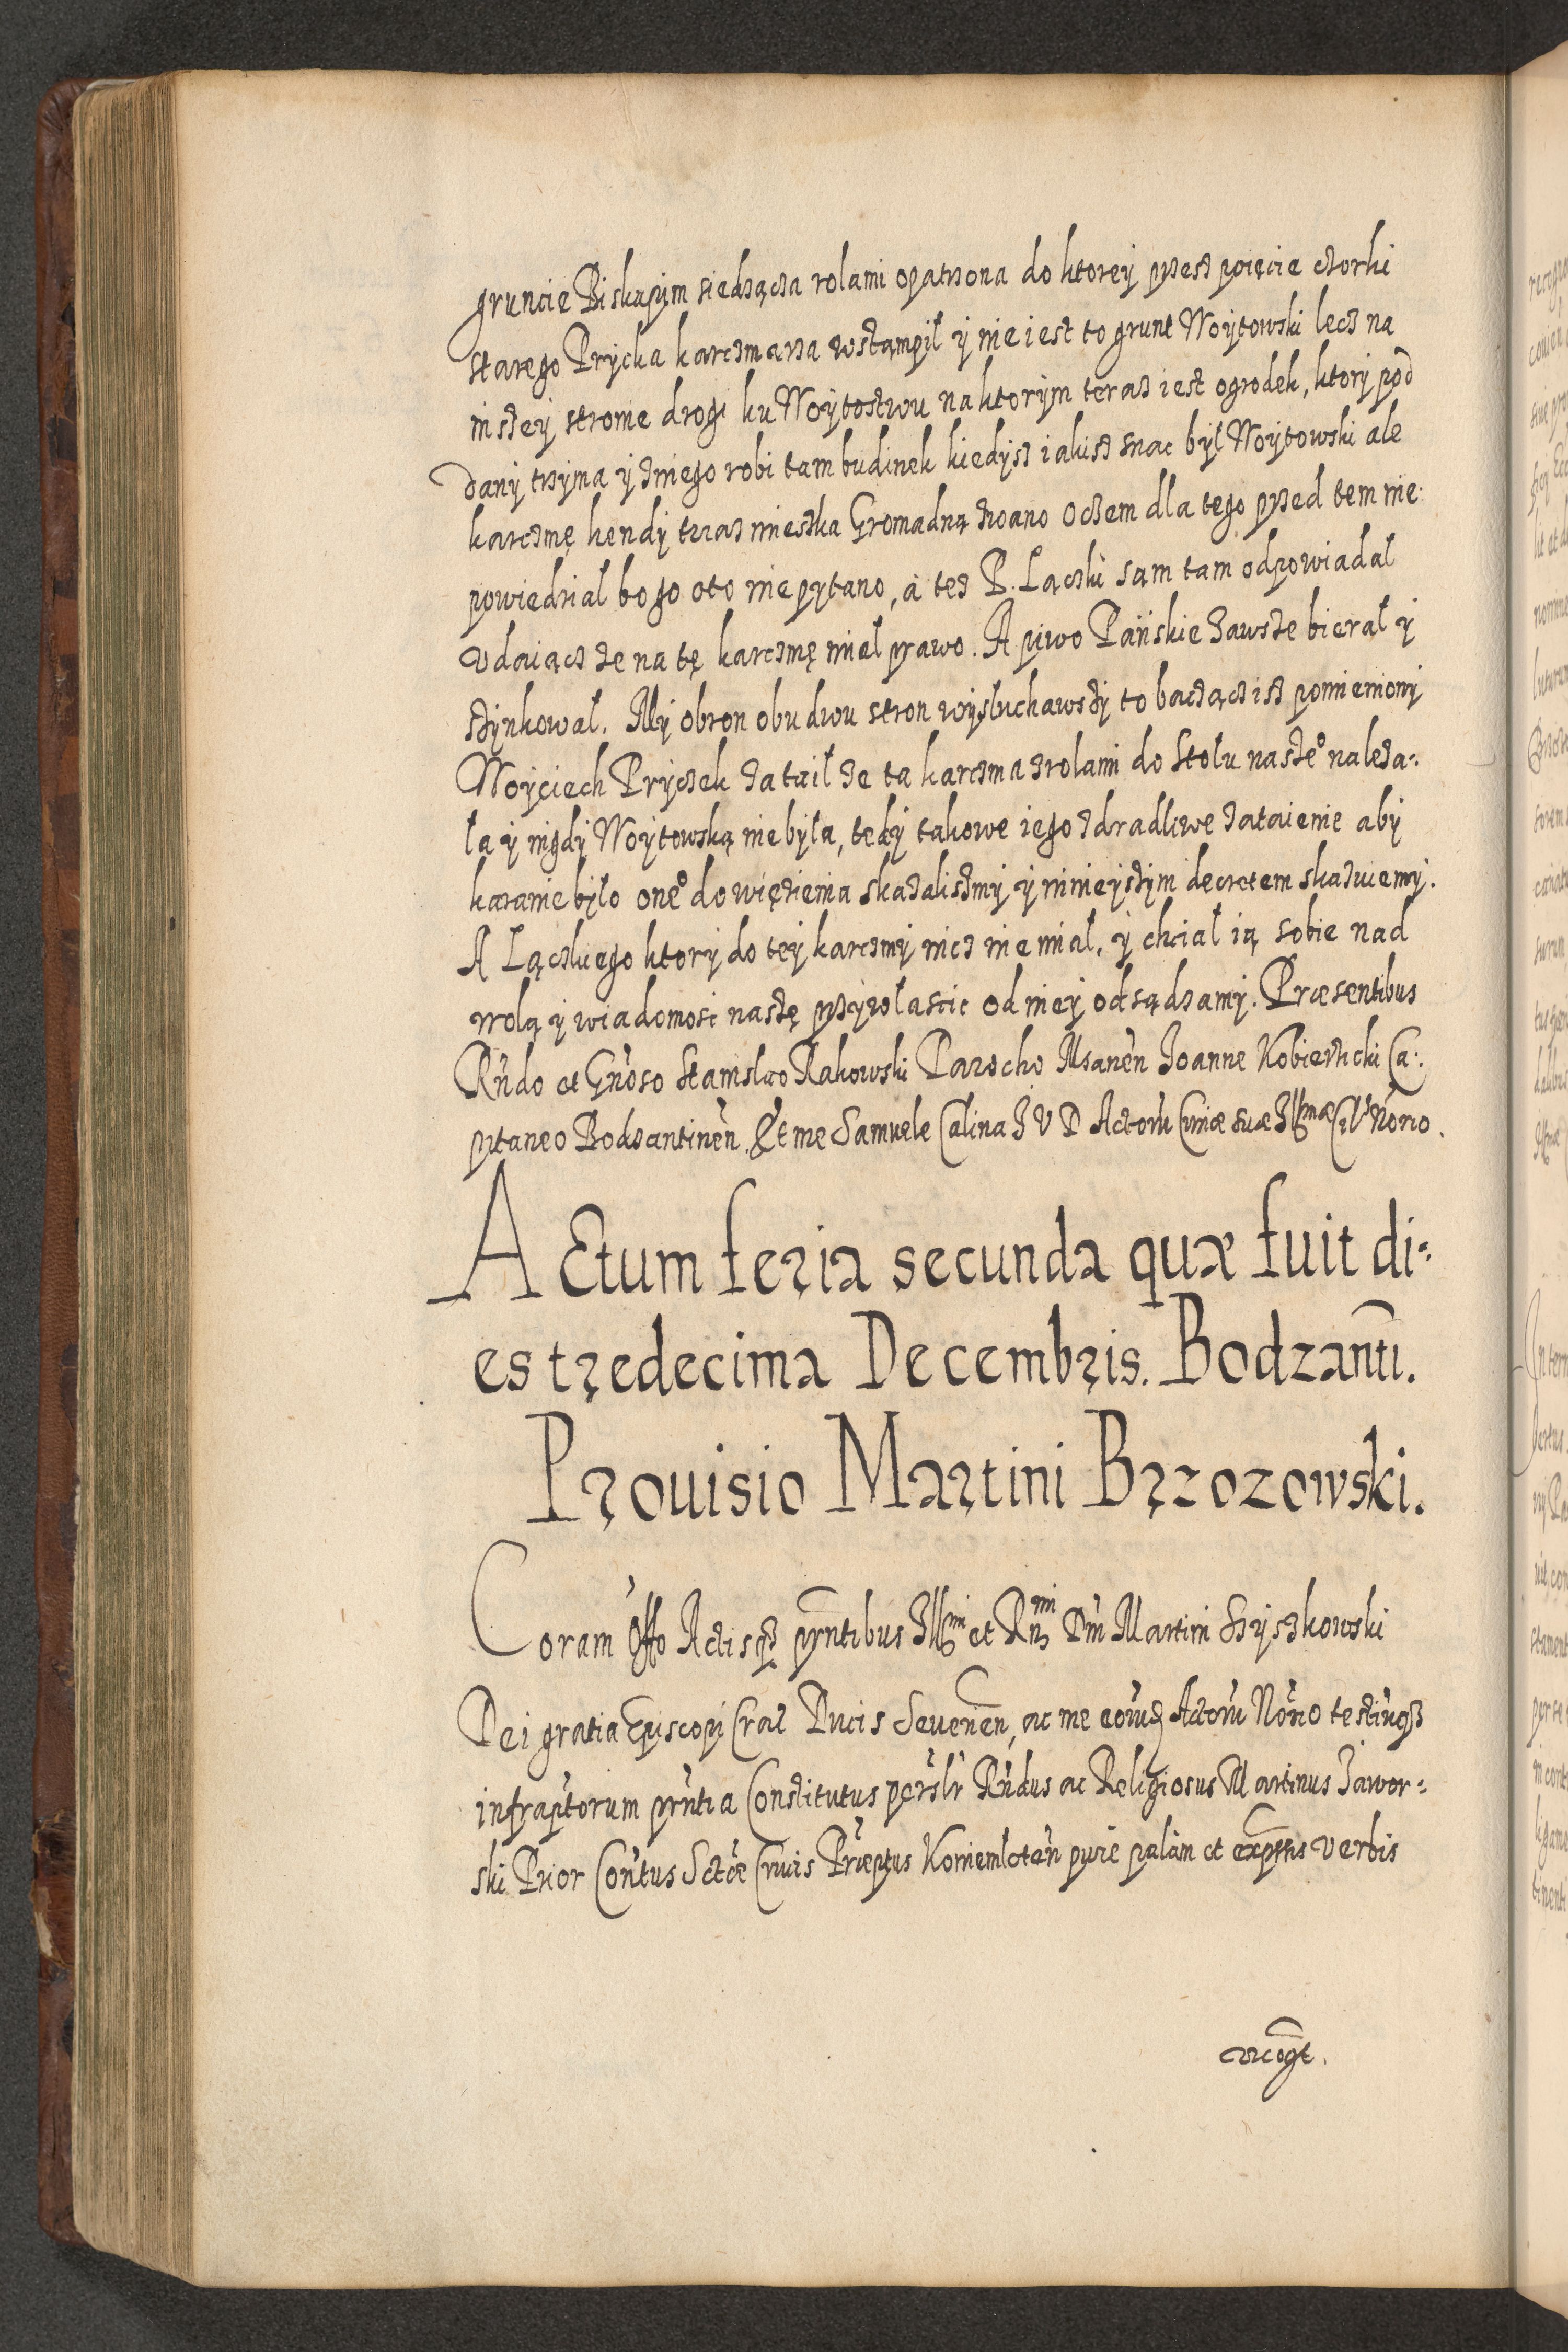 gruncie Biskupim siedząca rolami opatrzona do ktorey przez poięcie czorki
starego Prycka karczmarza wstąmpił y nie iest to grunt Woytowski lecz na
inszey stronie drogi ku Woytostwu na ktorym teraz iest ogrodek, ktory pod
dany trzyma y z niego robi tam budinek kiedysz iakisz znac był Woytowski ale
karczmę kendy teraz mieszka Gromadną zwano oczem dla tego przed tem nie
powiedział bo go oto nie pytano, a tez P. Łączki sam tam odpowiadał
vdaiącz ze na tę karczmę miał prawo. A piwo Pańskie zawsze bierał y
szynkował. My obron obu dwu stron wysłuchawszy to bacząc isz pomieniony
Woyciech Pryczek zataił ze ta karczma z rolami do Stołu naszeo należa:
ła y nigdy Woytowską nie była, tedy takowe iego zdradliwe zataienie aby
karanie było oneo do więzienia skazalismy y ninieyszym decretem skazuiemy.
A Łączkiego ktory do tey karczmy nicz nie miał, y chciał ią sobie nad
wolą y wiadomosc naszę przywłascic od niey odsądzamy. Præsentibus
Rndo et Gnoso Stanislao Rakowski Parocho Msanen Joanne Kobiernicki Ca:
pitaneo Bodzantinen. Et me Samuele Calina J V D Actoru Curiæ suæ Illmæ Cels Norio.
Actum feria secunda quæ fuit di-
es tredecima Decembris. Bodzanti.
Prouisio Martini Brzozowski.
Coram Offo Actisq prntibus Illmi et Rmi Dni Martini Szyszkowski
Dei gratia Episcopi Crac Ducis Seuerien, ac me eorud Actoru Norio testiuq
infraptorum prntia Constitutus persolr Rndus ac Religiosus Martinus Jawor:
ski Prior Contus Sctæ Crucis Præptus Koniemloten pure palam et expssis verbis
recogt.